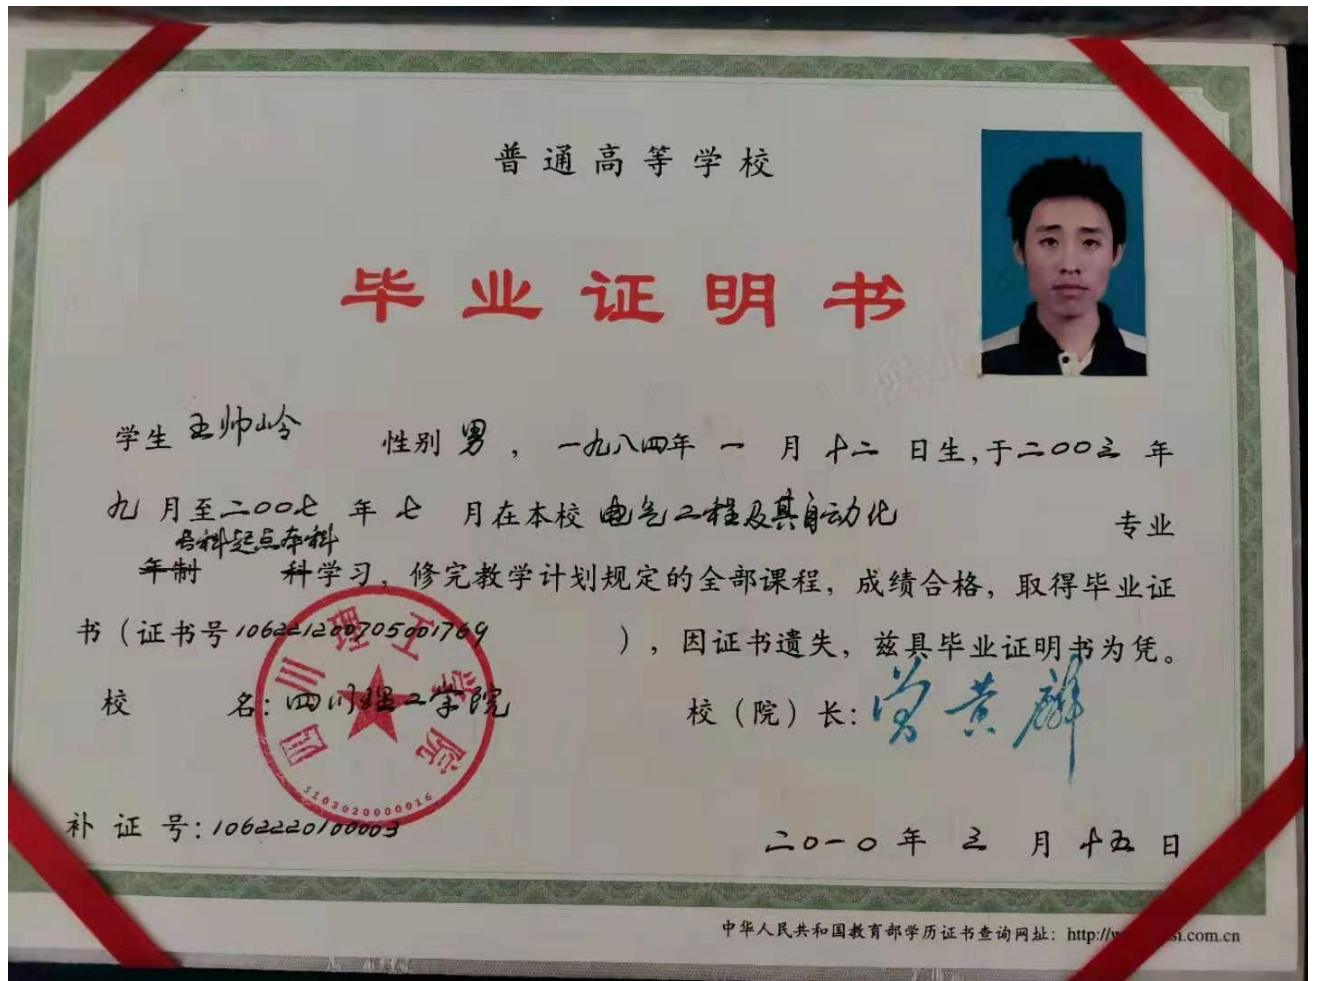 普通高等学校
毕业证明书
学生 王帅岭 性别 男 ， 一九八四年 一 月 十二 日生，于二00三 年
九 月至二00七 年 七 月在本校 电气工程及其自动化 专业
专科起点本科
年制 科学习，修完教学计划规定的全部课程，成绩合格，取得毕业证
书（证书号106221200705001769 ），因证书遗失，兹具毕业证明书为凭。
校 名：四川理工学院 校（院）长：曾黄麟
四川理工学院
5103020000016
补 证 号：1062220100003
二0一0 年 三 月 十五 日
中华人民共和国教育部学历证书查询网址：http://w si.com.cn